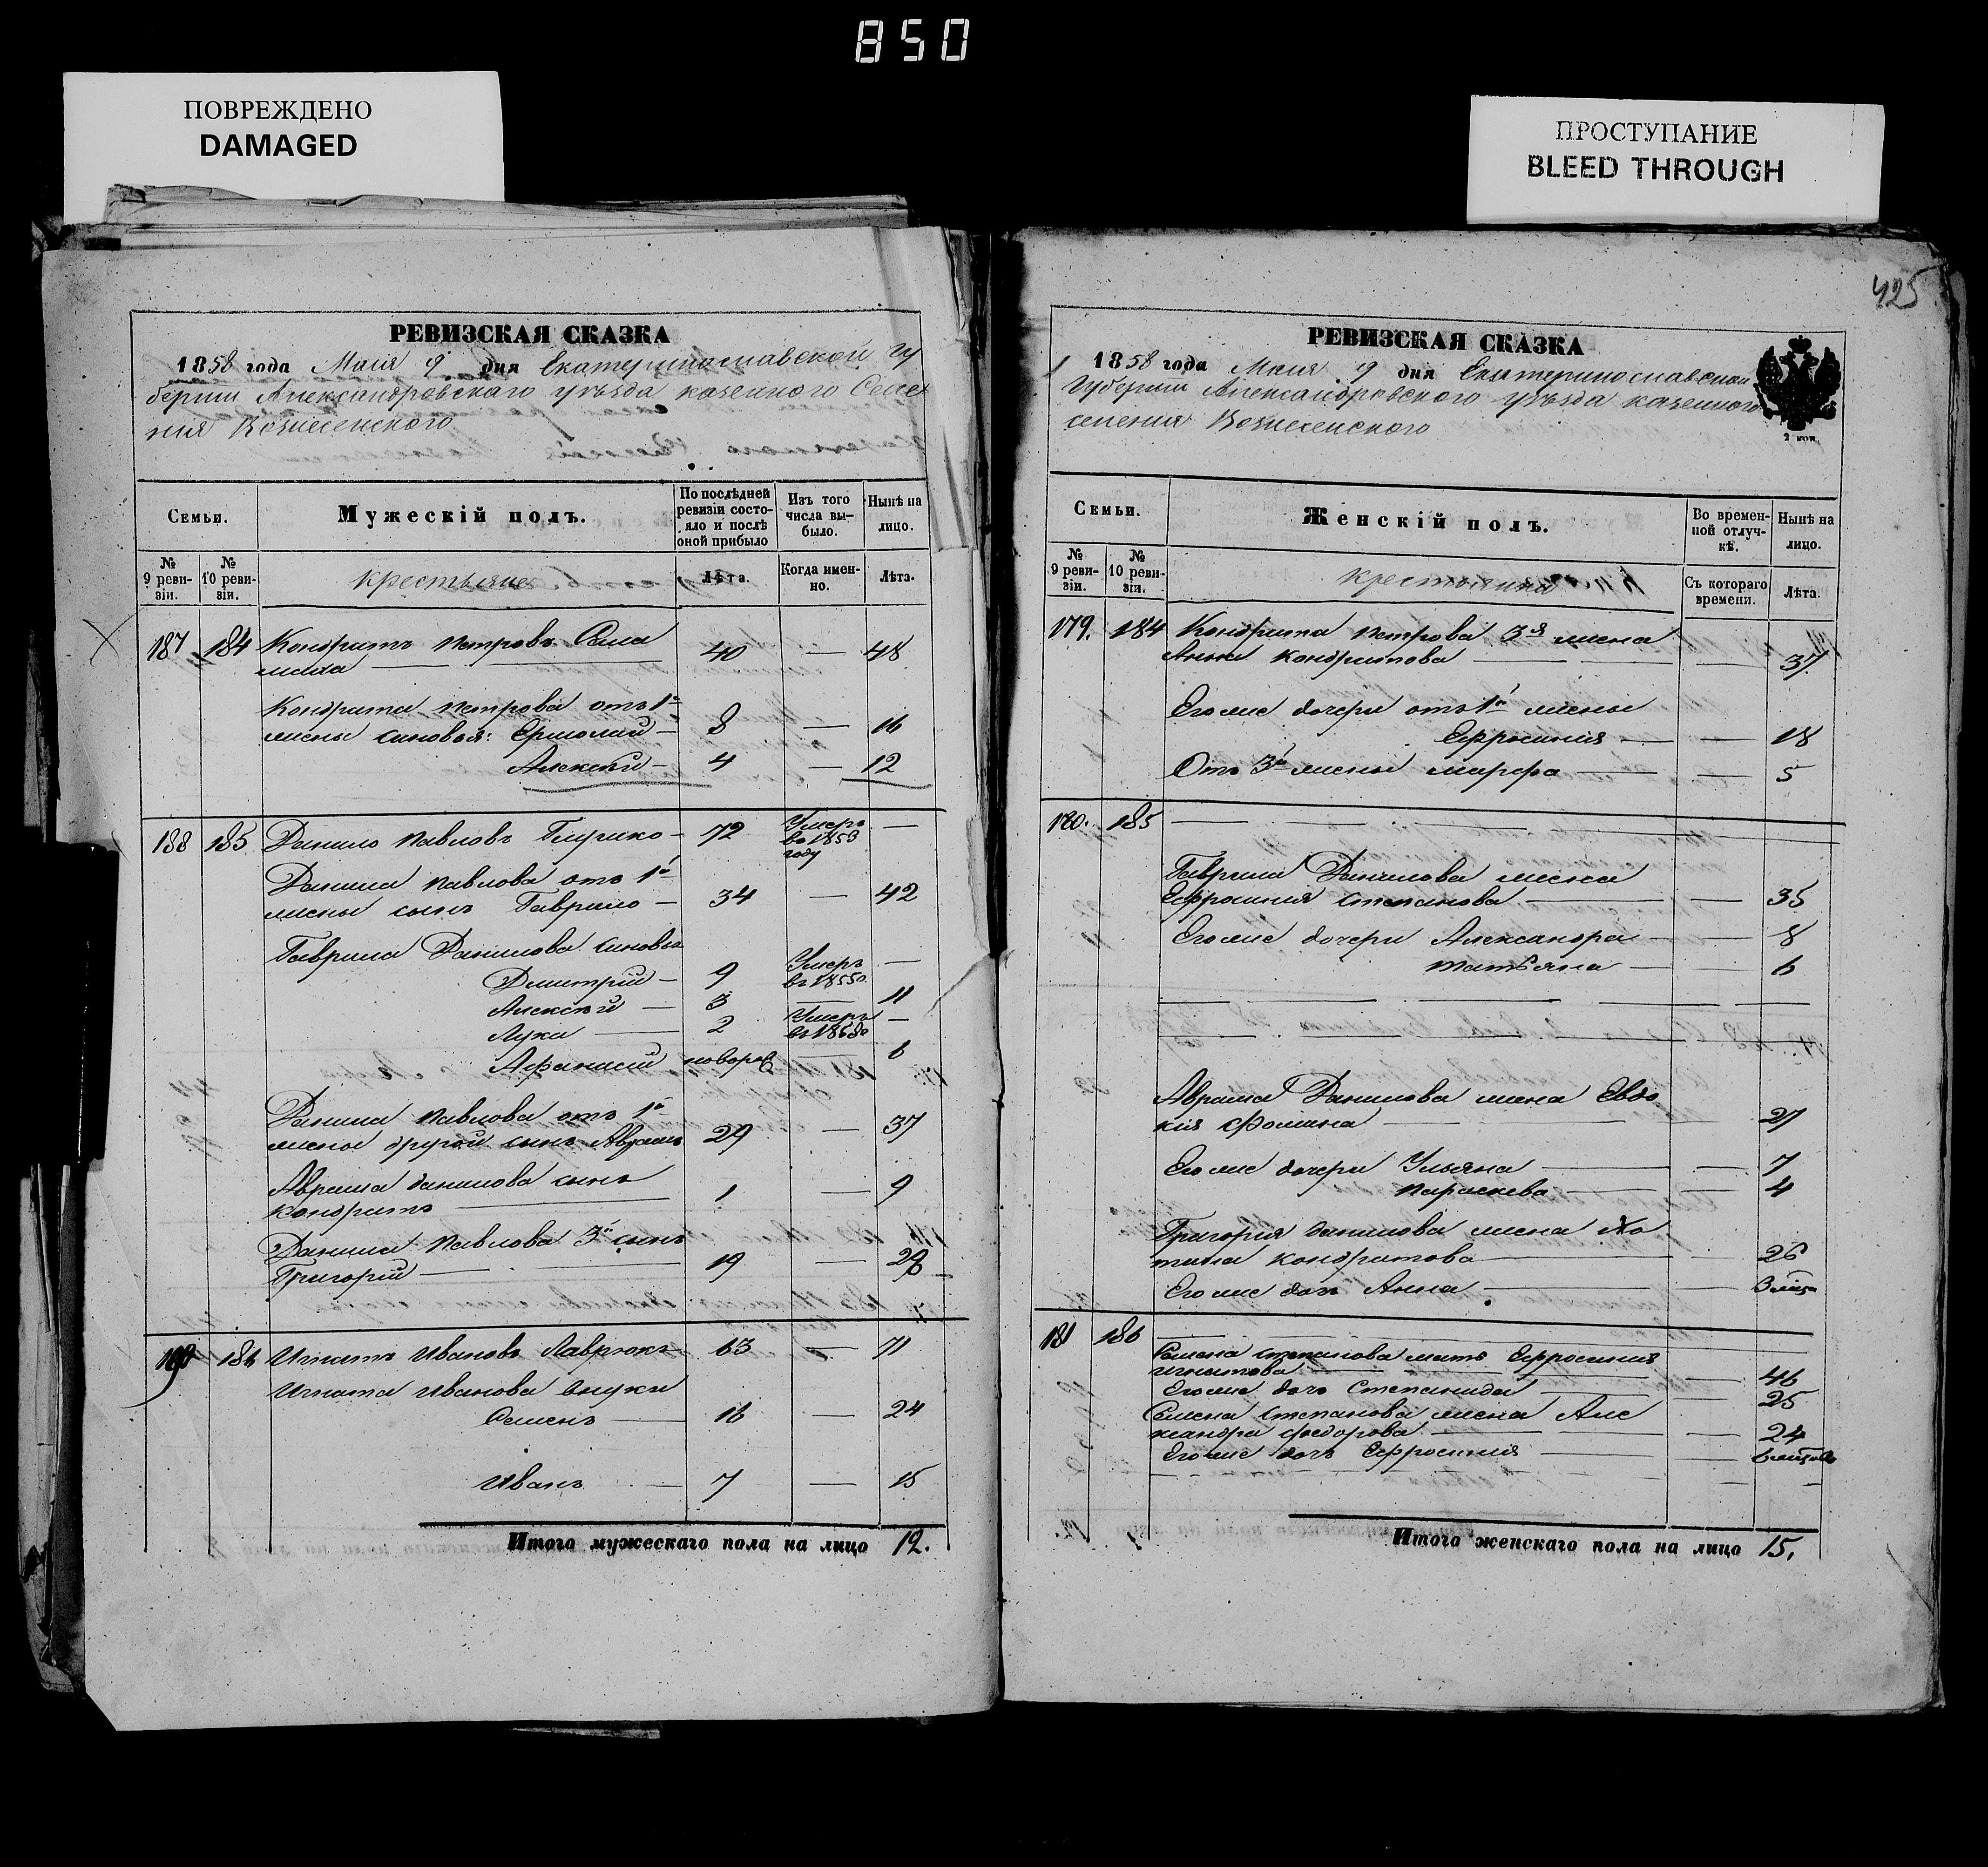 850
ПОВРЕЖДЕНО
DAMAGED
ПРОСТУПАНИЕ
BLEED THROUGH
РЕВИЗСКАЯ СКАЗКА
1858 года Маия 9 дня Екатеринославской гу
бернии Александровскаго уѣзда казенного Селе
ния Вознесенского
Семьи.
Мужескій полъ.
По послѣдней ревизіи состояло и послѣ оной прибыло
Изъ того числа выбыло.
Нынѣ на лицо.
№ 9 ревизіи.
№ 10 ревизіи.
Крестьяне
Лѣта.
Когда именно.
Лѣта.
187 184 Кондратъ Петровъ
40 — 48
Кондрата Петрова отъ 1й
жены сыновья: Ермолай — 8 — 16
Алексѣй — 4 — 12
188 185 Данило Павловъ — 72 Умеръ —
году
Данила Павлова отъ 1й
жены сынъ Гаврило — 34 — 42
Гаврила Данилова сыновья
Дмитрій — 9 Умеръ —
Алексѣй — 3 — 11
Лука — 2 Умеръ —
Афанасій новорож — 6
Данила Павлова отъ 1й
жены другой сынъ Аврамъ 29 — 37
Аврама Данилова сынъ
Кондратъ — 1 — 9
Данила Павлова 3й сынъ
Григорій — 19 —
186 Игнатъ Ивановъ Лаврюкъ 63 — 71
Игната Иванова внуки
Семенъ — 16 — 24
Иванъ — 7 — 15
Итого мужескаго пола на лицо 12.
425
РЕВИЗСКАЯ СКАЗКА
1858 года Маия 9 дня Екатеринославской
Губернии Александровского уѣзда казенного
селения Вознесенского
2 коп.
Семьи.
Женскій полъ.
Во временной отлучкѣ.
Нынѣ на лицо.
№ 9 ревизіи.
№ 10 ревизіи.
Съ котораго времени.
Лѣта.
179. 184 Кондрата Петрова 3я жена
Анна Кондратова — — 37
Его же дочери отъ 1й жены
Ефросинія — — 18
Отъ 3й жены Марфа — — 5
180. 185 —
Гаврила Данилова жена
Ефросинія Степанова — — 35
Его же дочери Александра — — 8
Татьяна — — 6
Аврама Данилова жена Евдо
кия Фомина — 27
Его же дочери Ульяна — — 7
Параскева — — 4
Григорія Данилова жена
Кондратова — 26
Его же дочь Анна —
181 186 —
Семена Степанова мать Ефросиния
Игнатова — — 46
Его же дочь Степанида — 25
Семена Степанова жена Алек
сандра Федорова — — 24
Его же дочь Ефросиния —
Итого женскаго пола на лицо 15.